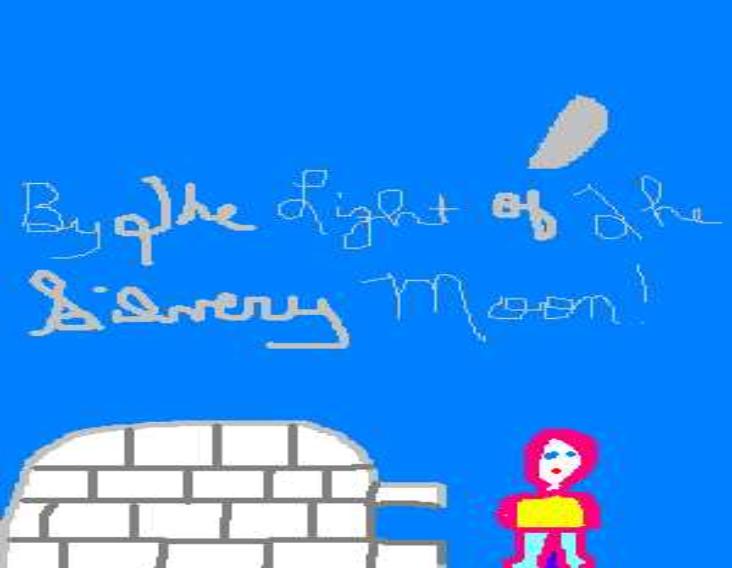 By The Light of The
Silvery Moon!